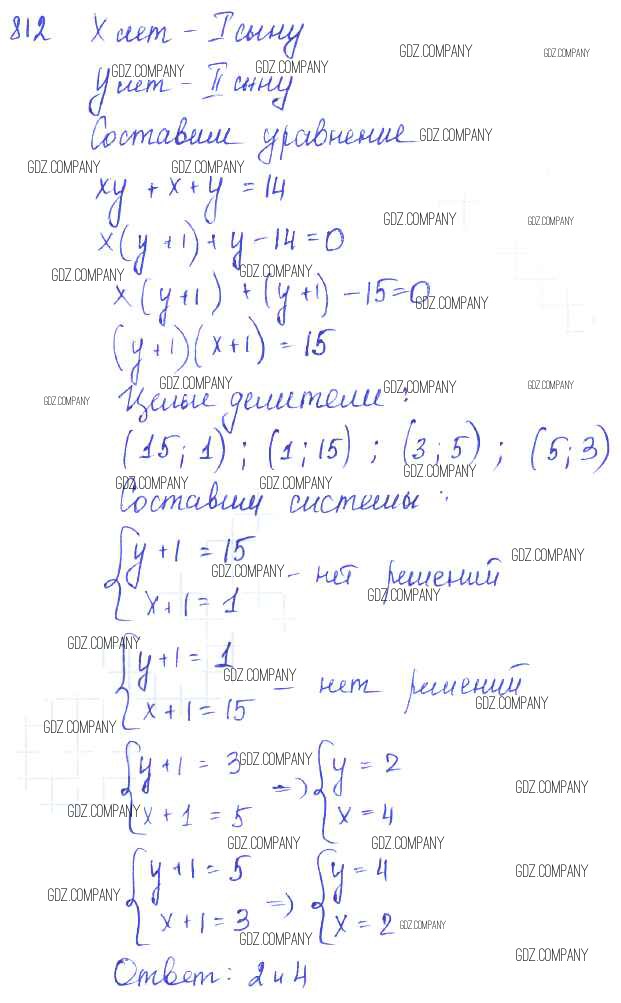 812 X лет - I сыну
GDZ.COMPANY GDZ.COMPANY
GDZ.COMPANY GDZ.COMPANY
y лет - II сыну
Составим уравнение GDZ.COMPANY
GDZ.COMPANY GDZ.COMPANY
xy + x + y = 14
GDZ.COMPANY GDZ.COMPANY
x(y+1) + y - 14 = 0
GDZ.COMPANY GDZ.COMPANY
x(y+1) + (y+1) - 15 = 0
GDZ.COMPANY
(y+1)(x+1) = 15
GDZ.COMPANY GDZ.COMPANY GDZ.COMPANY
GDZ.COMPANY Целые делители:
(15; 1); (1; 15); (3; 5); (5; 3)
GDZ.COMPANY
GDZ.COMPANY GDZ.COMPANY
Составим системы:
{ y+1 = 15
GDZ.COMPANY - нет решений GDZ.COMPANY
x+1 = 1 GDZ.COMPANY
GDZ.COMPANY
{ y+1 = 1
GDZ.COMPANY - нет решений
x+1 = 15 GDZ.COMPANY
GDZ.COMPANY
{ y+1 = 3 GDZ.COMPANY => { y = 2
GDZ.COMPANY
GDZ.COMPANY x+1 = 5 x = 4
GDZ.COMPANY GDZ.COMPANY
{ y+1 = 5 => { y = 4 GDZ.COMPANY
GDZ.COMPANY
x+1 = 3 x = 2 GDZ.COMPANY
GDZ.COMPANY GDZ.COMPANY
Ответ: 2 и 4